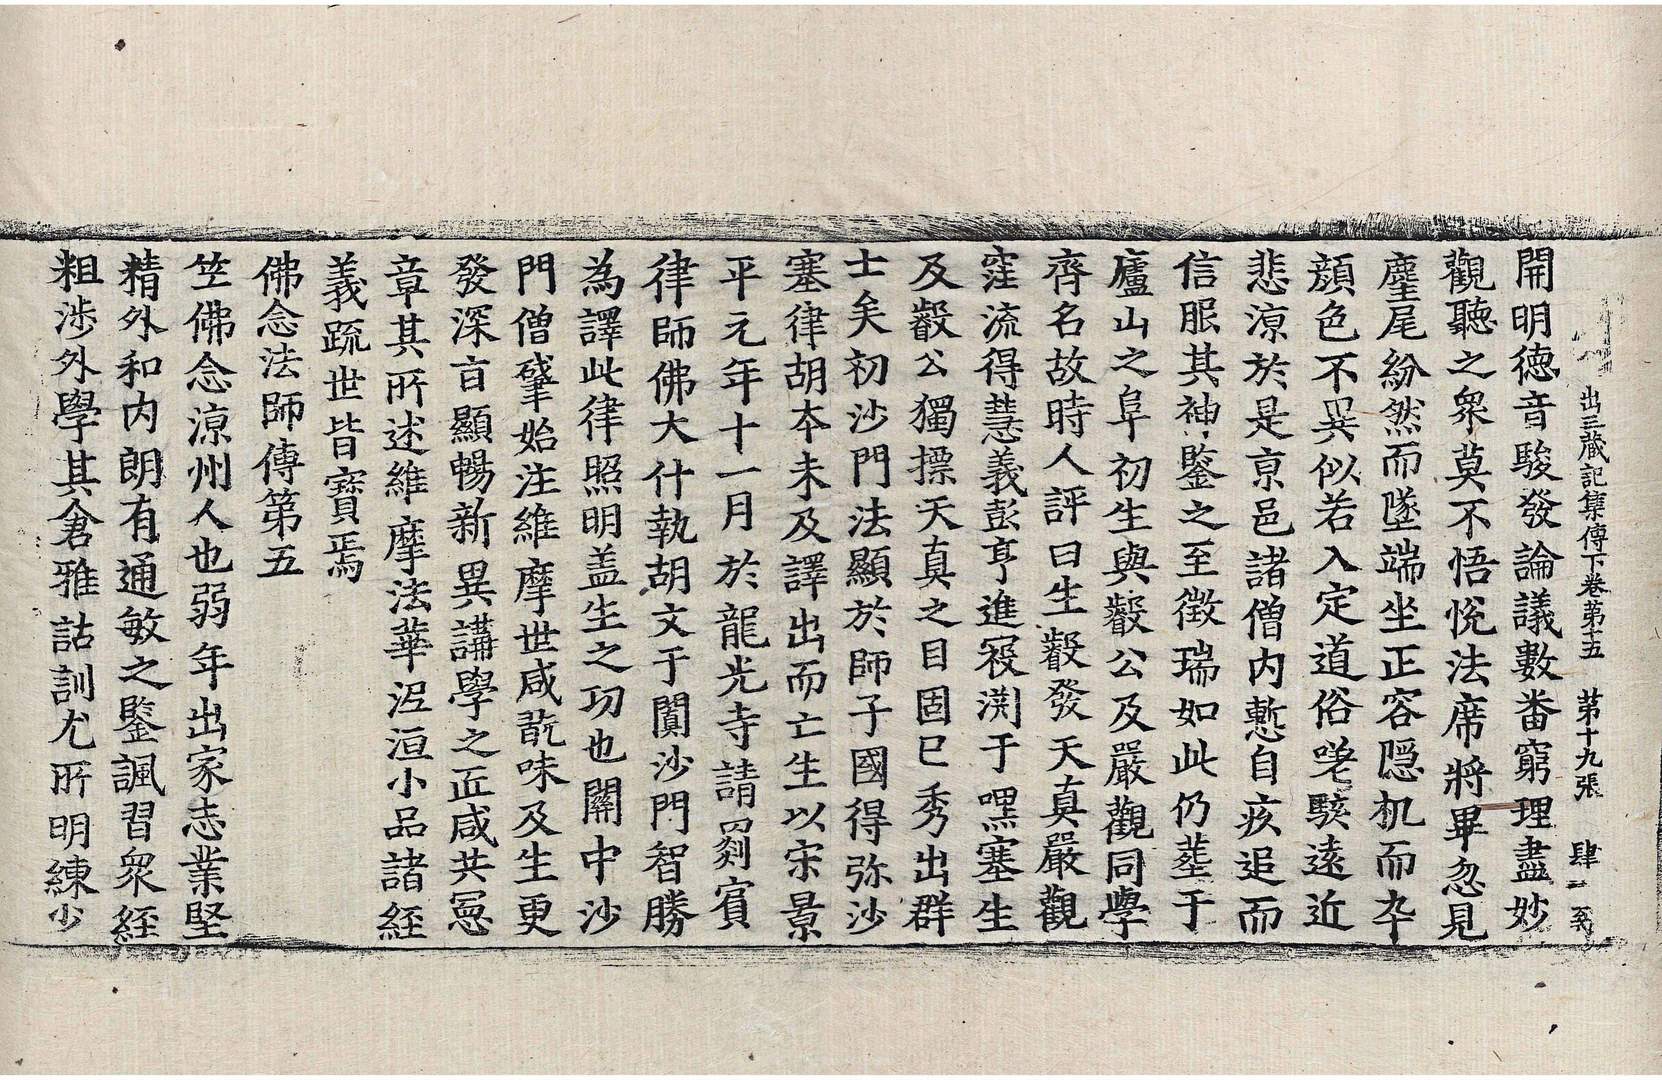 出三藏記集傳下卷第十五　第十九張　肆
開明德音駿發論議數番窮理盡妙
觀聽之衆莫不悟悅法席將畢忽見
麈尾紛然而墜端坐正容隱机而卒
顏色不異似若入定道俗嗟駭遠近
悲涼於是京邑諸僧內慙自疚追而
信服其神鑒之至徵瑞如此仍塟于
廬山之阜初生與叡公及嚴觀同學
齊名故時人評曰生叡發天真嚴觀
窪流得慧義彭亨進寇渕于嘿塞生
及叡公獨摽天真之目固已秀出群
士矣初沙門法顯於師子國得弥沙
塞律胡本未及譯出而亡生以宋景
平元年十一月於龍光寺請罽賓
律師佛大什執胡文于闐沙門智勝
為譯此律照明盖生之功也關中沙
門僧肇始注維摩世咸翫味及生更
發深旨顯暢新異講學之匠咸共憲
章其所述維摩法華泥洹小品諸經
義疏世皆寶焉
佛念法師傳第五
竺佛念涼州人也弱年出家志業堅
精外和內朗有通敏之鑒諷習衆經
粗涉外學其倉雅詁訓尤所明練少